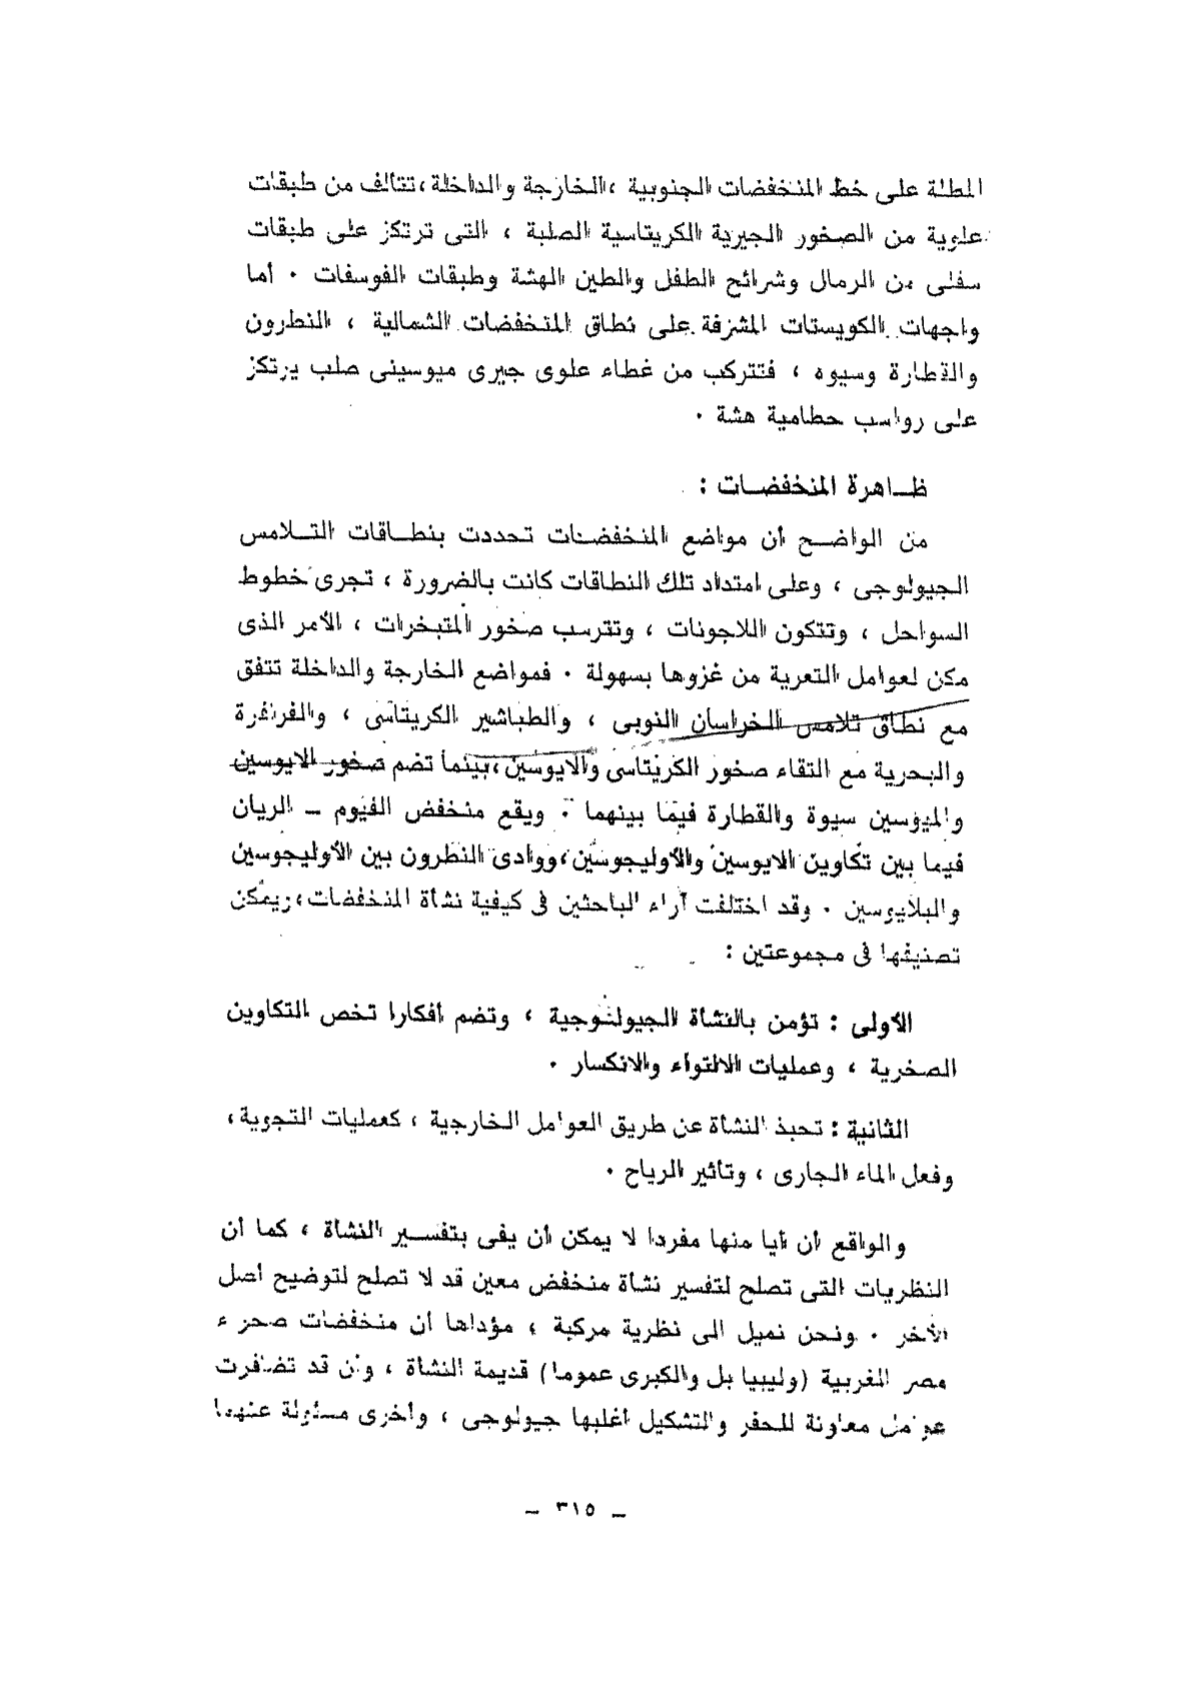 المطلة على خط المنخفضات الجنوبية ، الخارجة والداخلة ، تتألف من طبقات
علوية من الصخور الجيرية الكريتاسية الصلبة ، التى ترتكز على طبقات
سفلى من الرمال وشرائح الطفل والطين الهشة وطبقات الفوسفات ٠ أما
واجهات الكويستات المشرفة على نطاق المنخفضات الشمالية ، النطرون
والقطارة وسيوه ، فتتركب من غطاء علوى جيرى ميوسينى صلب يرتكز
على رواسب حطامية هشة ٠
ظــاهرة المنخفضــات :
من الواضــح أن مواضع المنخفضات تحددت بنطــاقات التــلامس
الجيولوجى ، وعلى امتداد تلك النطاقات كانت بالضرورة ، تجرى خطوط
السواحل ، وتتكون اللاجونات ، وتترسب صخور المتبخرات ، الأمر الذى
مكن لعوامل التعرية من غزوها بسهولة ٠ فمواضع الخارجة والداخلة تتفق
مع نطاق تلامس الخراسان النوبى ، والطباشير الكريتاسى ، والفرافرة
والبحرية مع التقاء صخور الكريتاسى والايوسين ، بينما تضم صخور الايوسين
والميوسين سيوة والقطارة فيما بينهما ٠ ويقع منخفض الفيوم ــ الريان
فيما بين تكاوين الايوسين والأوليجوسين ، ووادى النطرون بين الأوليجوسين
والبلايوسين ٠ وقد اختلفت آراء الباحثين فى كيفية نشأة المنخفضات ، ويمكن
تصنيفها فى مجموعتين :
الأولى : تؤمن بالنشأة الجيولوجية ، وتضم أفكارا تخص التكاوين
الصخرية ، وعمليات الالتواء والانكسار ٠
الثانية : تحبذ النشأة عن طريق العوامل الخارجية ، كعمليات التجوية ،
وفعل الماء الجارى ، وتأثير الرياح ٠
والواقع أن أيا منها مفردا لا يمكن أن يفى بتفســير النشأة ، كما أن
النظريات التى تصلح لتفسير نشأة منخفض معين قد لا تصلح لتوضيح أصل
الآخر ٠ ونحن نميل الى نظرية مركبة ، مؤداها أن منخفضات صحراء
مصر الغربية (وليبيا بل والكبرى عموما) قديمة النشأة ، وأن قد تضافرت
عوامل معاونة للحفر والتشكيل أغلبها جيولوجى ، وأخرى مسئولة عنهما
ــ ٣١٥ ــ